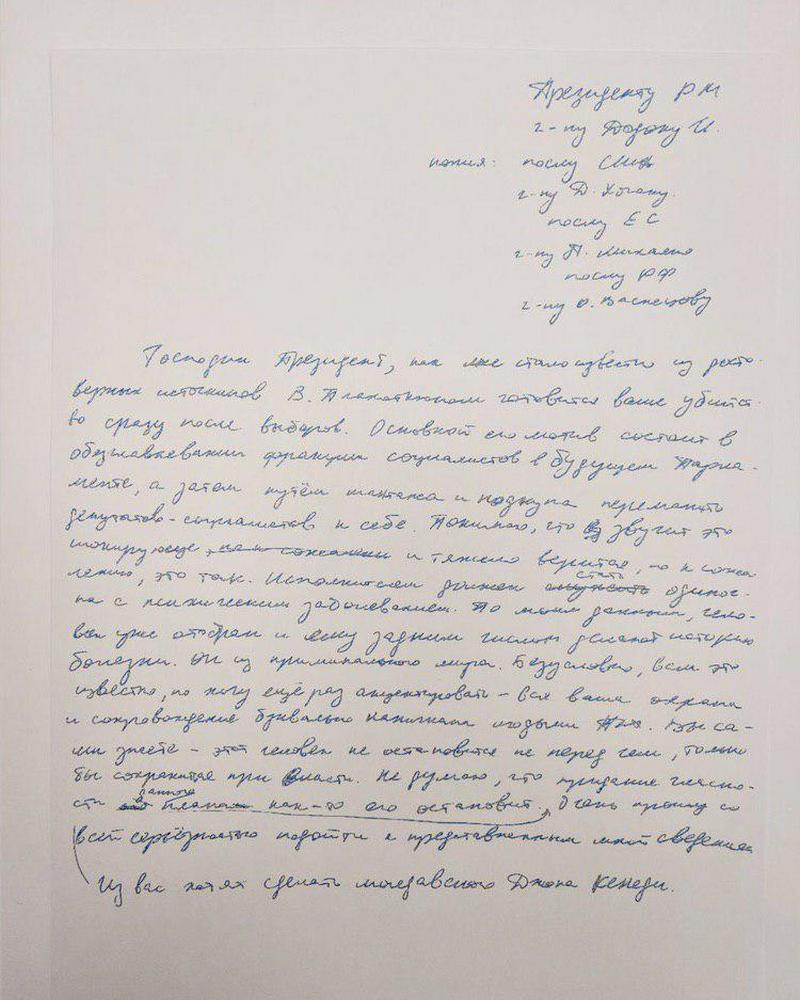 Президенту РМ
г-ну Додону И.
копия: послу США
г-ну Д. Хогану.
послу ЕС
г-ну П. Михалко
послу РФ
г-ну О. Васнецову
Господин Президент, как мне стало известно из досто-
верных источников В. Плахотнюком готовится ваше убийст-
во сразу после выборов. Основной его мотив состоит в
обезглавливании фракции социалистов в будущем Парла-
менте, а затем путём шантажа и подкупа переманить
депутатов-социалистов к себе. Понимаю, что звучит это
шокирующе, как сожалению и тяжело верится, но к сожа
лению, это так. Исполнителем должен стать одиноч-
ка с психическим заболеванием. По моим данным, чело-
век уже отобран и ему задним числом делают историю
болезни. Он из криминального мира. Безусловно, вам это
известно, но хочу ещё раз акцентировать - вся ваша охрана
и сопровождение буквально напичканы людьми Пл. Вы са-
ми знаете - этот человек не остановится не перед чем, только
бы сохранится при власти. Не думаю, что придание гласно-
сти данного планам как-то его остановит. Очень прошу со
всей серьёзностью подойти к представленным мной сведениям
Из вас хотят сделать молдавского Джона Кенеди.